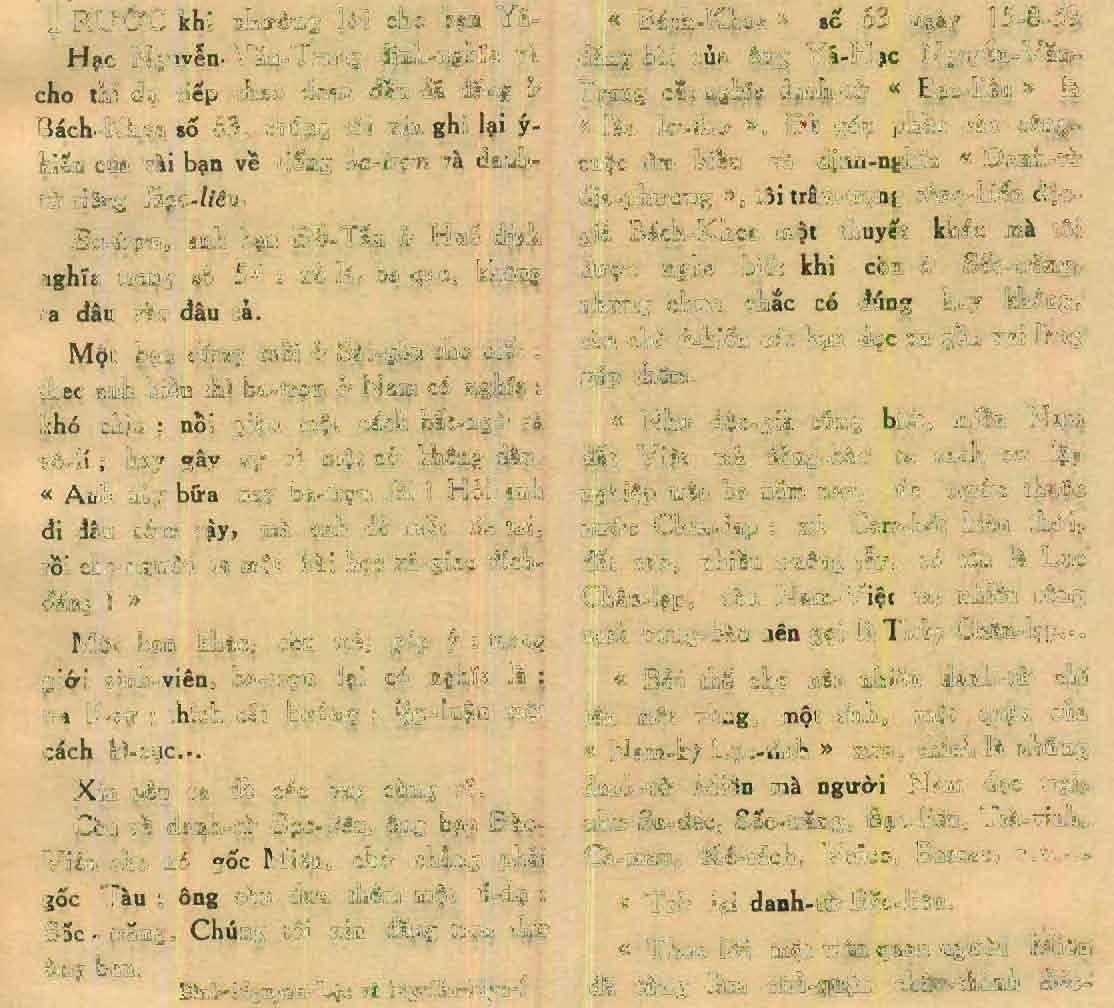 TRƯỚC khi nhường lời cho bạn Yã-
Hạc Nguyễn-Văn-Trung định-nghĩa và
cho thí dụ tiếp theo đoạn đầu đã đăng ở
Bách-Khoa số 63, chúng tôi xin ghi lại ý-
kiến của vài bạn về tiếng ba-trợn và danh-
từ riêng Bạc-liêu.
Ba-trợn, anh bạn Đỗ-Tấn ở Huế định
nghĩa trong số 57 : xỏ lá, ba que, không
ra đâu vào đâu cả.
Một bạn đứng tuổi ở Sài-gòn cho biết :
theo anh hiểu thì ba-trợn ở Nam có nghĩa :
khó chịu ; nổi giận một cách bất-ngờ và
vô-lí ; hay gây sự vì một cớ không đâu.
« Anh này bữa nay ba-trợn rồi ! Hỏi anh
đi đâu sớm vậy, mà anh đỏ mặt tía tai,
rồi cho người ta một bài học xã-giao đích-
đáng ! »
Một bạn khác, còn trẻ, góp ý : trong
giới sinh-viên, ba-trợn lại có nghĩa là :
thích cãi bướng ; lập-luận một
cách kì-cục...
Xin yêu
Còn về danh-từ Bạc-liêu, ông bạn Bảo-
Viên cho là gốc Miên, chớ chẳng phải
gốc Tàu ; ông còn đưa thêm một ví-dụ :
Sốc-trăng. Chúng tôi xin đăng trọn
ông bạn.
Bình-Nguyên-Lộc và
« Bách-Khoa » số 63 ngày 15-8-59
đăng bài của ông Yã-Hạc Nguyễn-Văn-
Trung cắt nghĩa danh-từ « Bạc-liêu » là
Để góp phần vào công-
cuộc tìm hiểu và định-nghĩa « Danh-từ
địa-phương », tôi trân-trọng cống-hiến độc-
giả Bách-Khoa một thuyết khác mà tôi
được nghe biết khi còn ở Sốc-trăng,
nhưng chưa chắc có đúng hay không,
xin chờ ý-kiến các bạn đọc xa gần vui lòng
góp thêm.
« Như độc-giả cũng biết, miền Nam
đất Việt mà đồng-bào ta sanh cơ lập
nghiệp trên ba trăm năm nay, trước thuộc
nước Chân-lạp : xứ Cam-bốt hiện thời,
đất cao, nhiều ruộng rẫy, có tên là Lục
Chân-lạp, còn Nam-Việt ta, nhiều sông
rạch nên gọi là Thủy Chân-lạp...
« Bởi thế cho nên nhiều danh-từ chỉ
tên một vùng, một tỉnh, một quận của
« Nam-kỳ Lục-tỉnh » xưa, chính là những
danh-từ Miên mà người Nam đọc trại
như Sa-đéc, Sốc-trăng, Bạc-liêu, Trà-vinh,
Cà-mau, Kế-sách, Bassac, v.v...
« Trở lại danh-từ Bạc-liêu.
« Theo lời một viên quan người Miên
đã từng làm chủ-quận